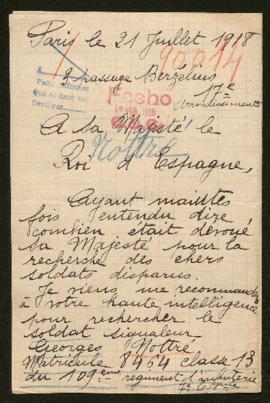 Paris le 21 Juillet 1918
90014
3 passage Berzélius
17e
arrondissement
Hecho
A sa Majesté le
Nottre
Roi d'Espagne,
Ayant maintes
fois entendu dire
combien était dévoué
sa Majesté pour la
recherche des chers
soldats disparus.
Je viens me recommander
à votre haute intelligence
pour rechercher le
soldat signaleur
Georges Nottré
Matricule 8464 classe 13
du 109ème régiment d'infanterie
7e Cie